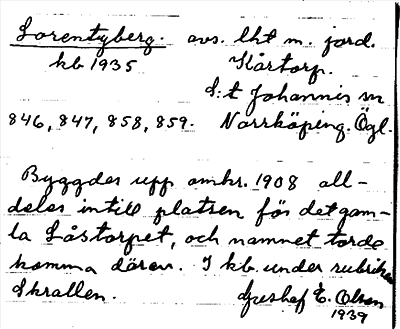 Lorentzberg. avs. lht m. jord.
kb 1935 Kårtorp.
S:t Johannis sn
846, 847, 858, 859. Norrköping. Ögl.
Byggdes upp omkr. 1908 all-
deles intill platsen för det gam-
la Låstorpet, och namnet torde
komma därav. I kb. under rubriken
Skrallen. Gustaf E. Olson
1939